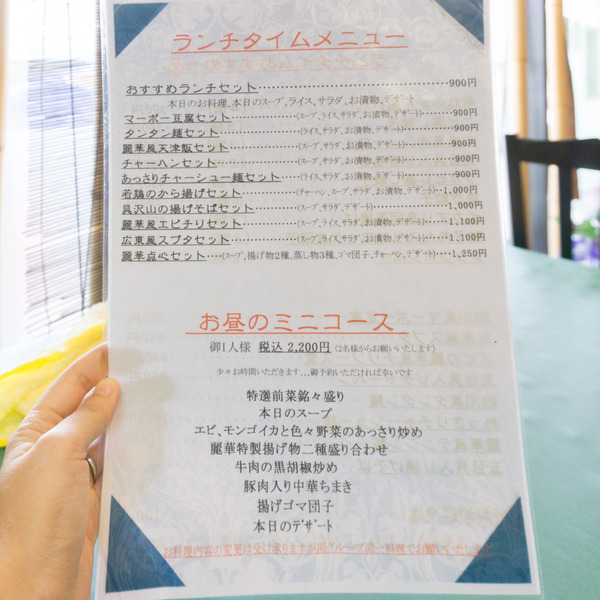 ランチタイムメニュー
おすすめランチセット……………………………………900円
本日のお料理、本日のスープ、ライス、サラダ、お漬物、デザート
マーボー豆腐セット…………(スープ、ライス、サラダ、お漬物、デザート)……900円
タンタン麺セット……………(ライス、サラダ、お漬物、デザート)……900円
麗華風天津飯セット…………(スープ、サラダ、お漬物、デザート)……900円
チャーハンセット……………(スープ、サラダ、お漬物、デザート)……900円
あっさりチャーシュー麺セット……(ライス、サラダ、お漬物、デザート)……900円
若鶏のから揚げセット…………(チャーハン、スープ、サラダ、お漬物、デザート)…1,000円
具沢山の揚げそばセット………(スープ、サラダ、お漬物、デザート)……1,000円
麗華風エビチリセット…………(スープ、ライス、サラダ、お漬物、デザート)……1,100円
広東風スブタセット……………(スープ、ライス、サラダ、お漬物、デザート)……1,100円
麗華点心セット…(スープ、揚げ物2種、蒸し物3種、ゴマ団子、チャーハン、デザート)…1,250円
お昼のミニコース
御1人様 税込 2,200円 (2名様からお願いいたします)
少々お時間いただきます…御予約いただければ幸いです
特選前菜銘々盛り
本日のスープ
エビ、モンゴイカと色々野菜のあっさり炒め
麗華特製揚げ物二種盛り合わせ
牛肉の黒胡椒炒め
豚肉入り中華ちまき
揚げゴマ団子
本日のデザート
お料理内容の変更は受け承りますが同グループ同一料理でお願いいたします